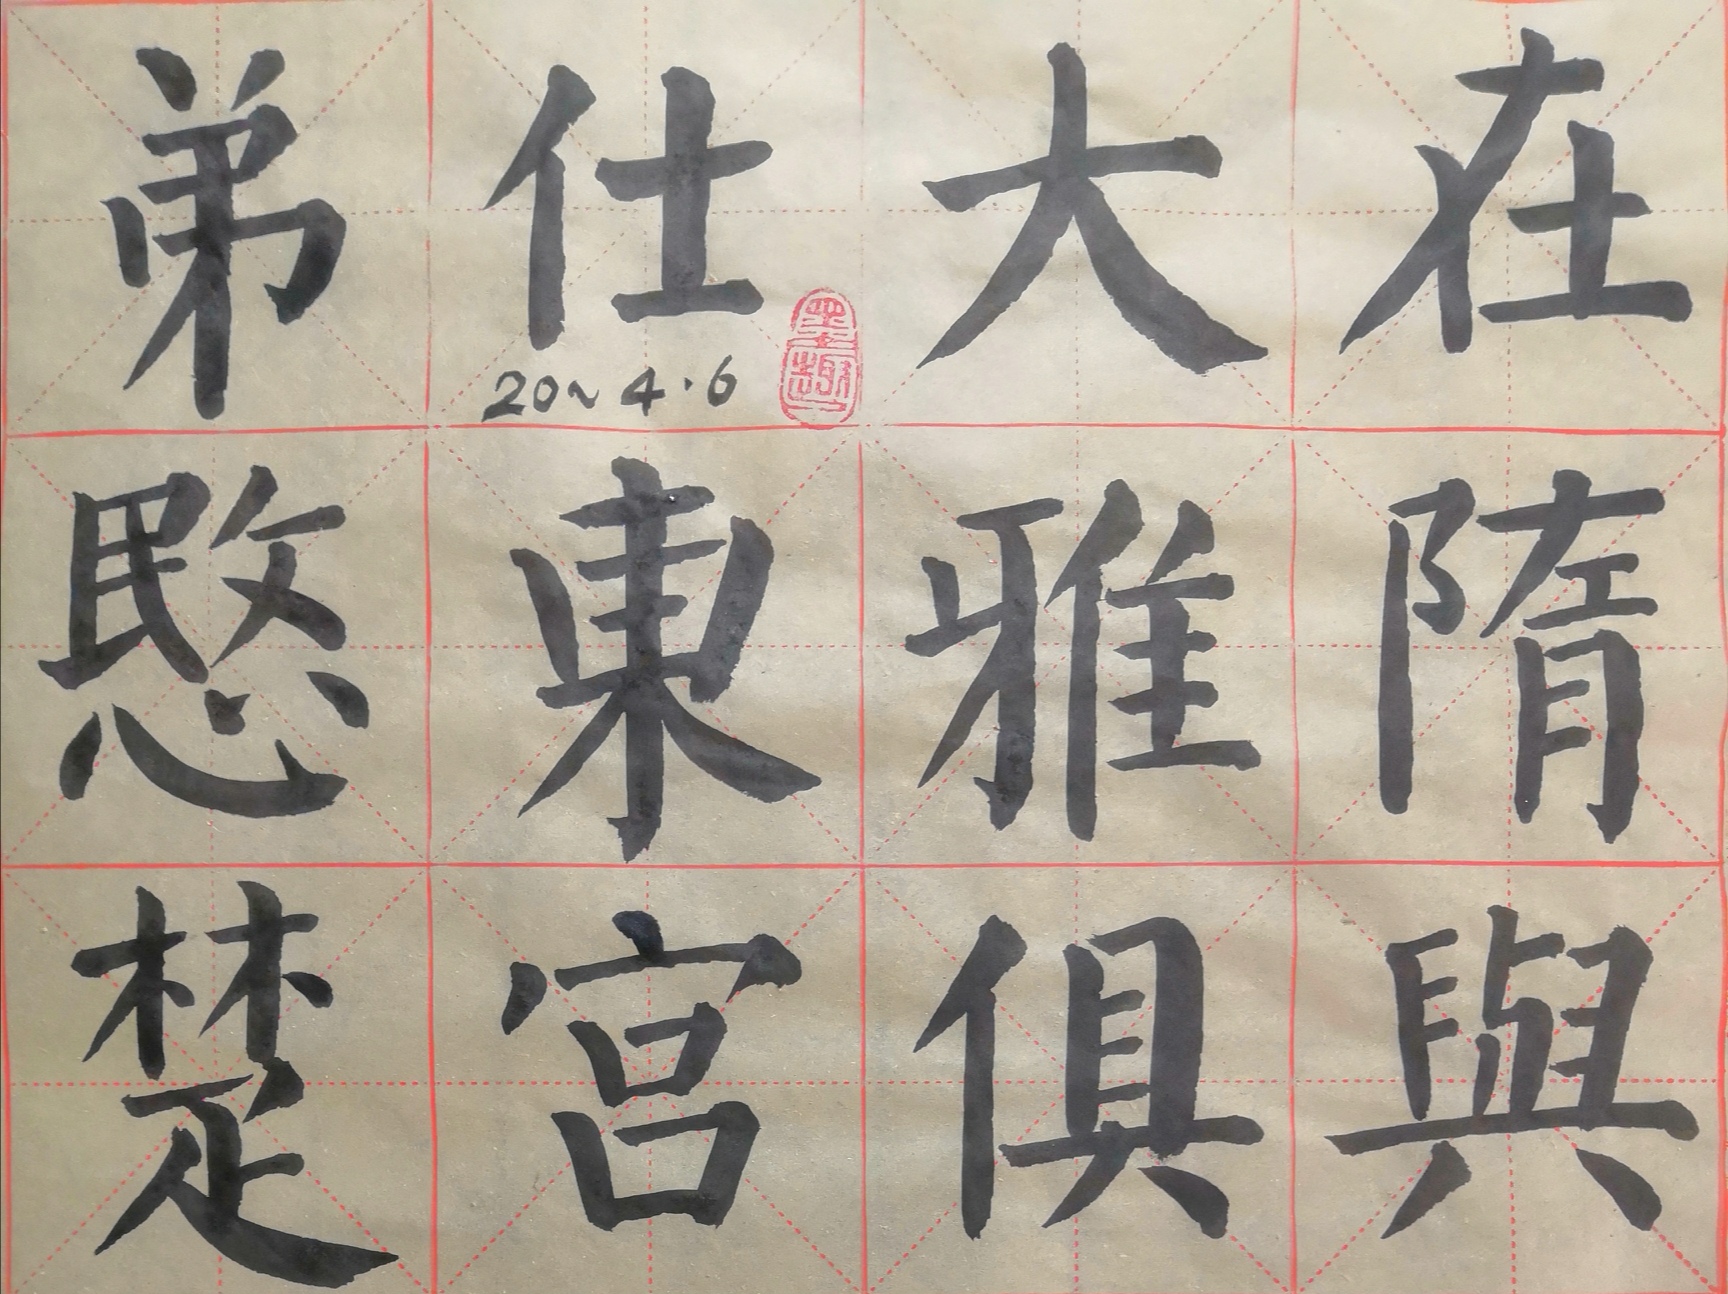 在隋與
大雅俱
仕東宮
弟愍楚
20~4·6
墨趣